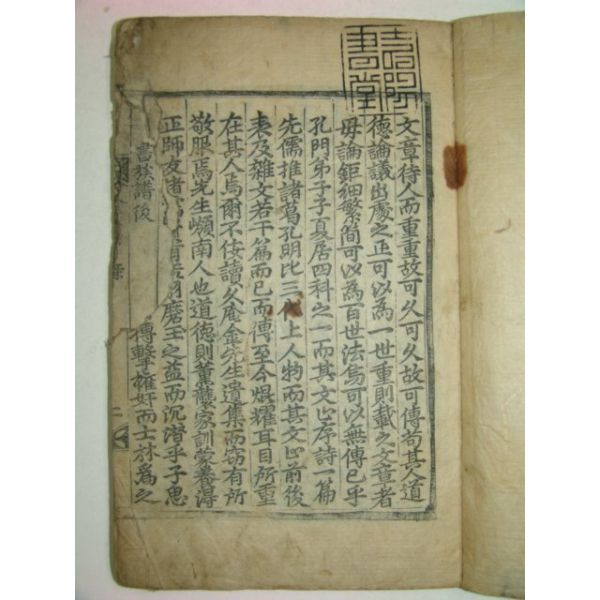 文章待人而重重故可久可久故可傳苟其人道
德論議出處之正可以為一世重則載之文章者
毋論鉅細繁簡可以為百世法烏可以無傳已乎
孔門弟子子夏居四科之一而其文止序詩一篇
先儒推諸葛孔明比三代上人物而其文止前後
表及雜文若干篇而已而傳至今焜耀耳目所重
在其人焉爾不佞讀久庵金先生遺集而窃有所
敬服焉先生嶺南人也道德則薰襲家訓蒙養得
正師友諸磨玉之益而沉潜乎子思
書族譜後
傳擊權奸而士林爲之
二
書堂